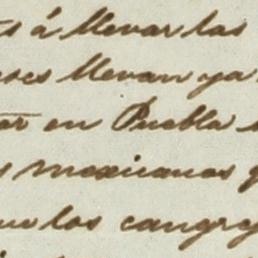 á llevar las
llevan ya
en Puebla
mexicanos
los cangre